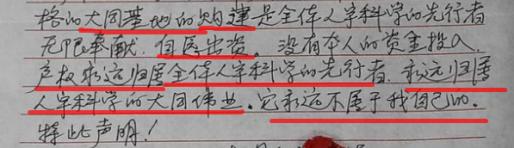 格的大同基地的购建是全体人字科学的先行者
无限奉献、自愿出资。没有本人的资金投入。
产权永远归属全体人字科学的先行者、永远归属
人字科学的大同伟业。它永远不属于我自己的。
特此声明！